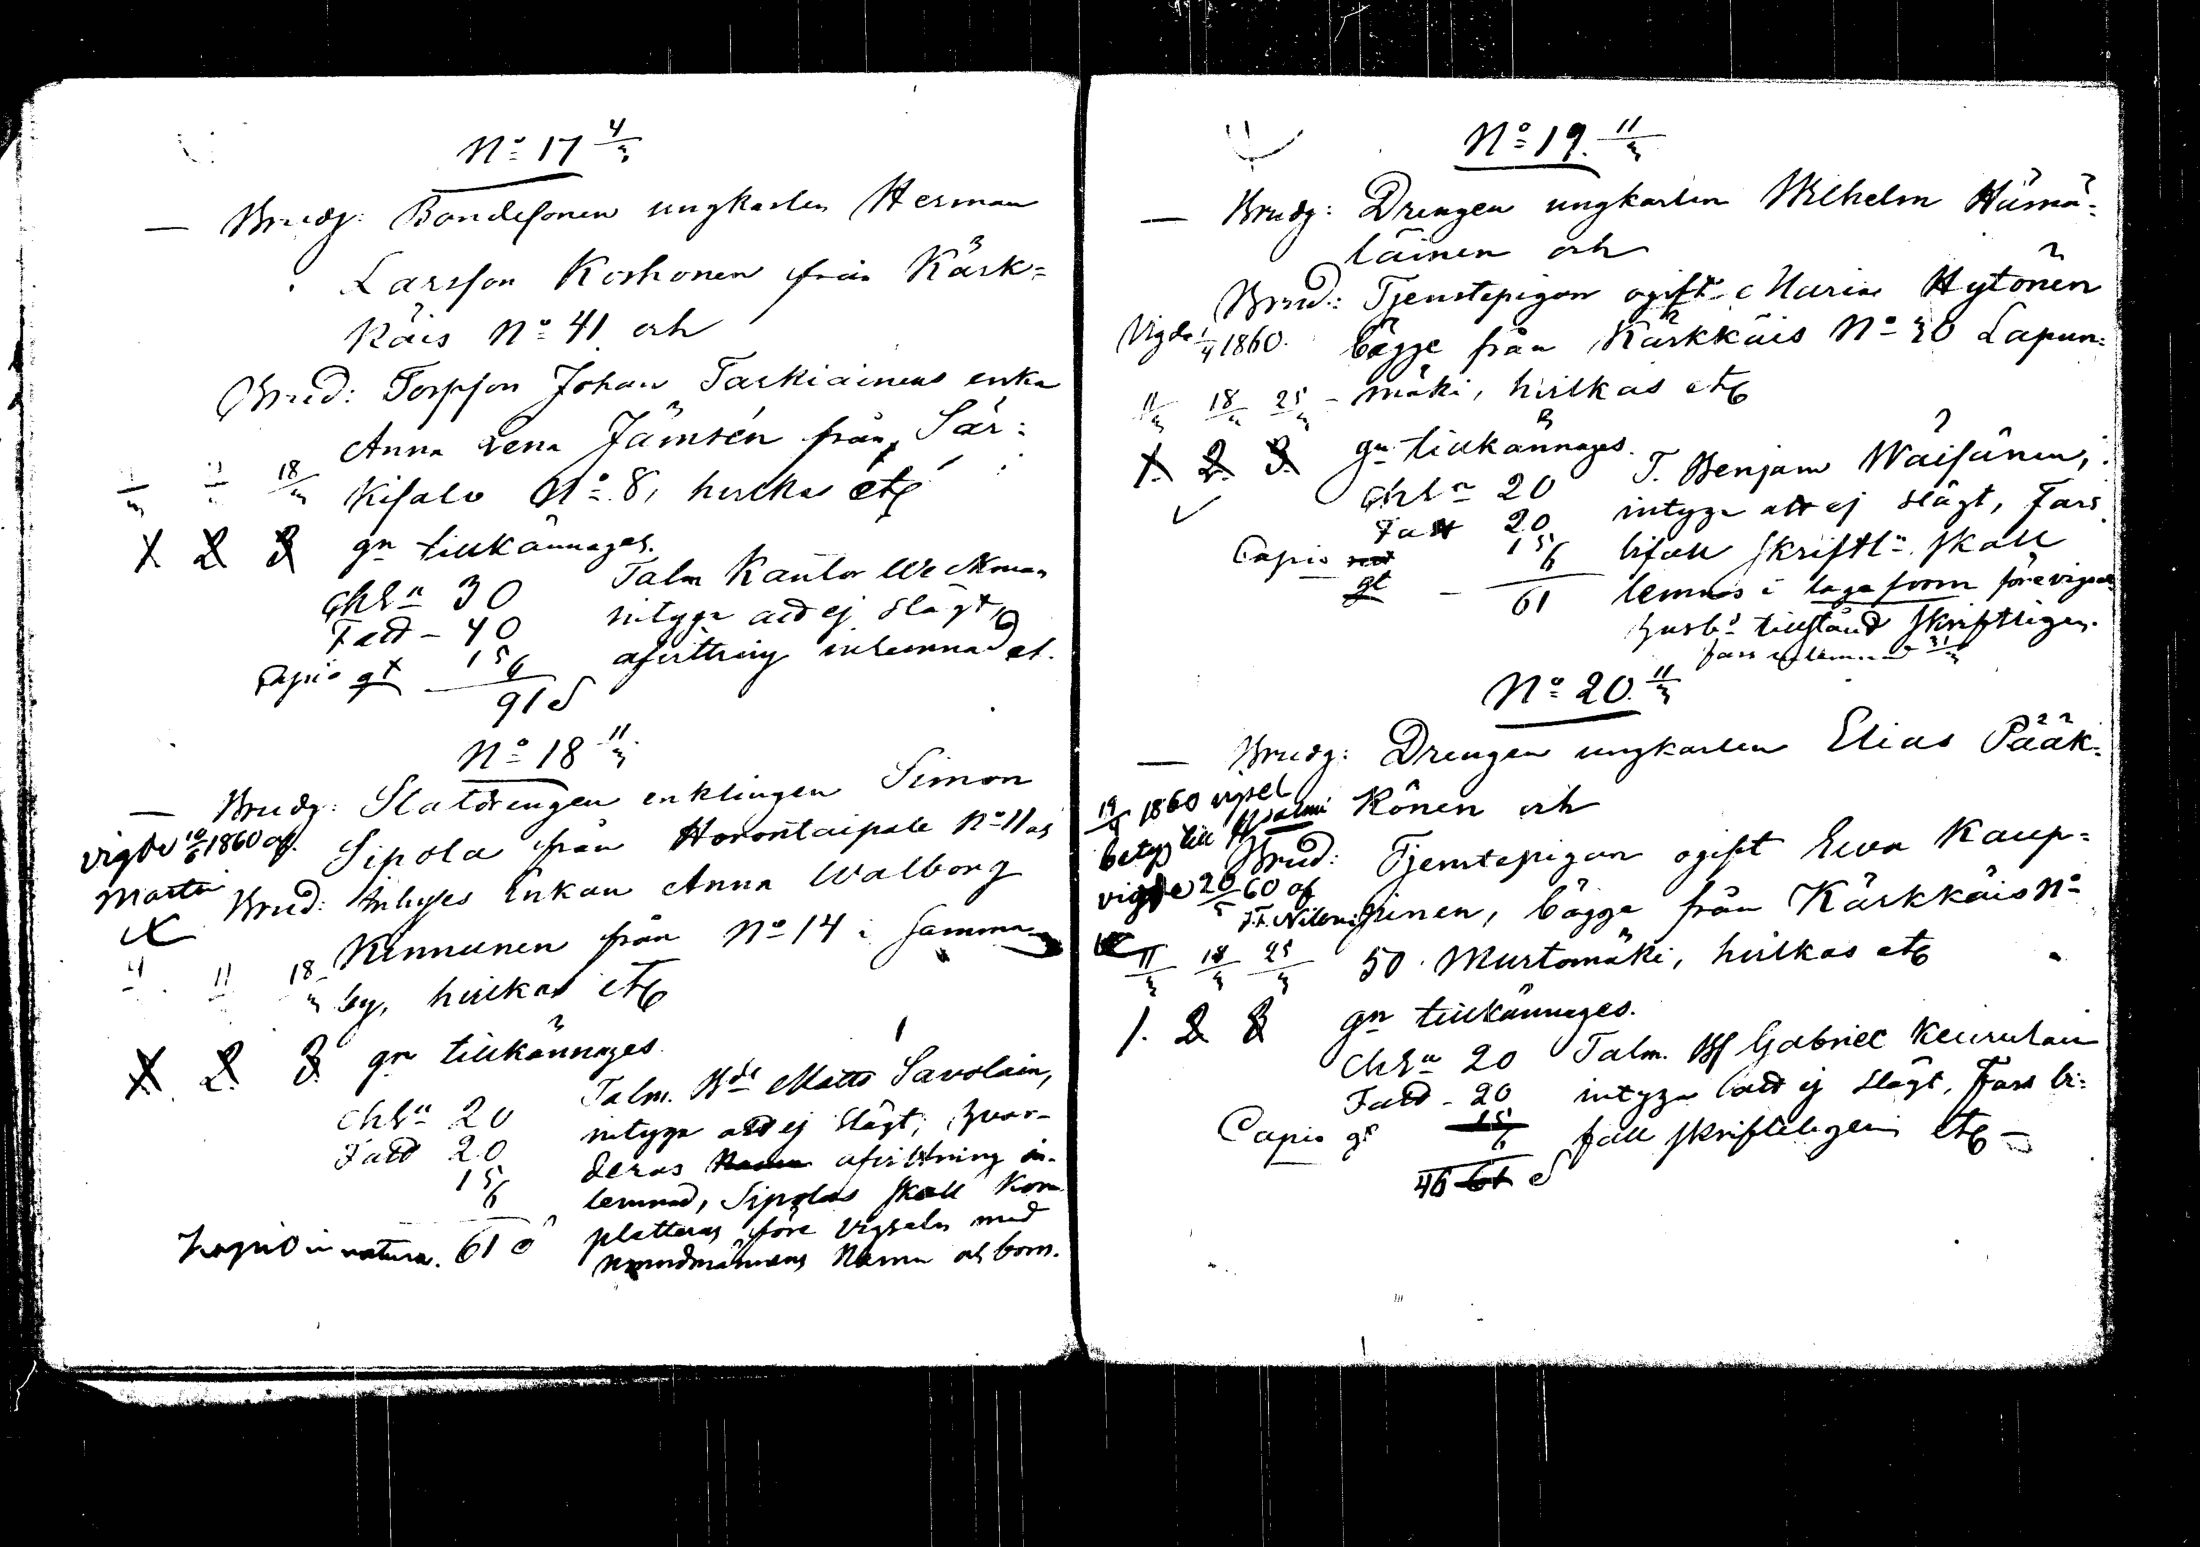 No 17 4/3
— Brudg: Bondesonen ungkarlen Herman
Larsson Korhonen från Kärk=
käis No 41 och
Brud: Torpson Johan Taskiainens enka
Anna Lena Jämsén från Sär=
kisalo No 8, hvilkas etc
18/3
1 2 3 gn tillkännages.
Chln 30
Fatt - 40
15
6
Capio gt
91
Talm Kantor Weckman
intyga att ej slägt,
afvittring inlemnad et.
No 18 11/3
— Brudg: Statdrengen enklingen Simon
Sipola från Horontaipale No 11 och
vigde 10/6 1860 af
Martin
Brud: Inhyses Enkan Anna Walborg
Kinnunen från No 14 i samma
4 11 18/3
by, hvilkas etc
1. 2. 3. gn tillkännages.
Chln 20
Fatt 20
15
6
Capio in natura. 61
Talm. Matts Savolain,
intyga att ej slägt, hvar-
deras afvittring in-
lemnad, Sipolas skall kom
pletteras före vigseln med
namn och bom.
No 19. 11/3
— Brudg: Drengen ungkarlen Wilhelm Hämä=
läinen och
Brud: Tjenstepigan ogift Maria Hytönen
Vigde 1/4 1860.
bägge från Kärkkäis No 30 Lapun=
11/3 18/3 25/3 - mäki, hvilkas etc
1. 2. 3. gn tillkännages.
Chln 20
Fatt 20
15
6
Capio gt - 61
T. Benjam Wäisänen,
intyga att ej slägt, Fars
bifall skriftln. skall
lemnas i laga form före vigseln
husbs tillstånd skriftligen.
fars inlemnad 31/3
No 20. 11/3
— Brudg: Drengen ungkarlen Elias Pääk=
könen och
19/4 1860 vigsel
betyg till
Brud: Tjenstepigan ogift Ewa Kaup=
vigde 20/5 60 af
pinen, bägge från Kärkkäis No
11/3 18/3 25/3 50. Murtomäki, hvilkas etc
1. 2 3 gn tillkännages.
Chln 20
Fatt - 20
15
6
Capio gt
46 61
Talm. Gabriel Keurulain
intyga att ej slägt, Fars bi=
fall skriftligen etc —